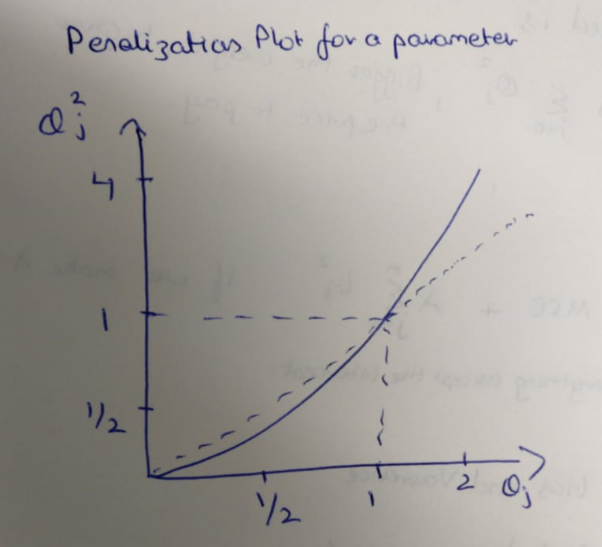 Penalization Plot for a parameter
θj²
4
1
1/2
1/2
1
2
θj